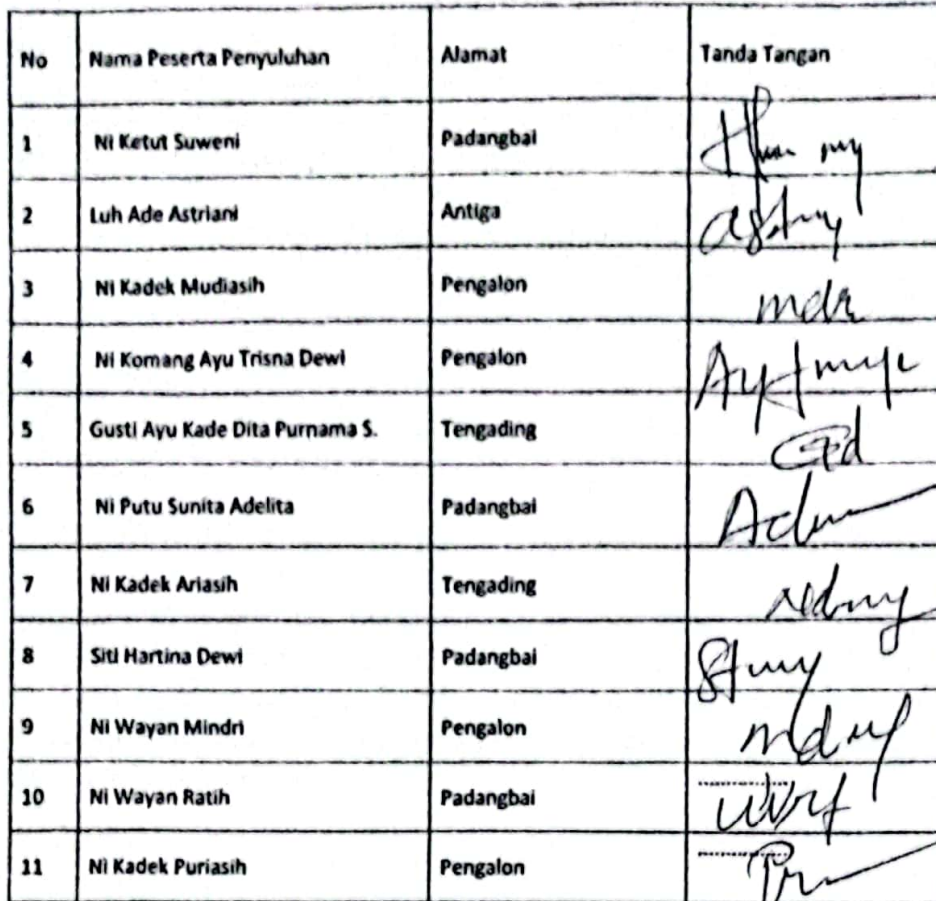 No Nama Peserta Penyuluhan Alamat Tanda Tangan
1 Ni Ketut Suweni Padangbai
2 Luh Ade Astriani Antiga
3 Ni Kadek Mudiasih Pengalon
4 Ni Komang Ayu Trisna Dewi Pengalon
5 Gusti Ayu Kade Dita Purnama S. Tengading
6 Ni Putu Sunita Adelita Padangbai
7 Ni Kadek Ariasih Tengading
8 Siti Hartina Dewi Padangbai
9 Ni Wayan Mindri Pengalon
10 Ni Wayan Ratih Padangbai
11 Ni Kadek Puriasih Pengalon